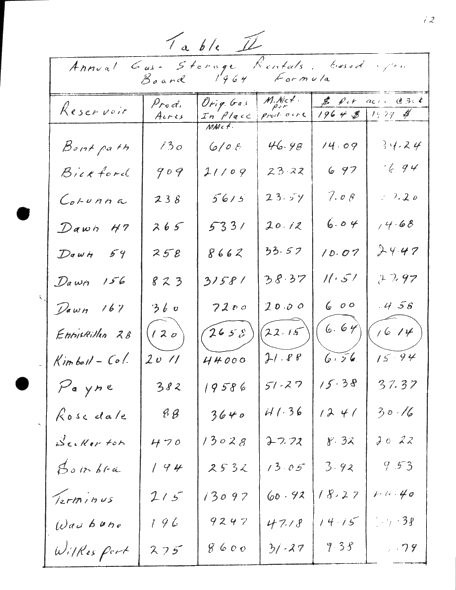 12
Table II
Annual Gas Storage Rentals, based upon
Board 1964 Formula
Reservoir Prod. Acres Orig. Gas In Place MMcf. M.Mcf. per prod acre $ per acre 1964 $
Bentpath 130 6108 46.98 14.09 34.24
Bickford 909 21109 23.22 6 97
Corunna 238 5615 23.59 7.08
Dawn 47 265 5331 20.12 6.04 14.68
Dawn 59 258 8662 33.57 10.07 24 47
Dawn 156 823 31581 38.37 11.51 27.97
Dawn 167 360 7200 20.00 6 00 14.58
Enniskillen 28 120 2658 22.15 6.64 16 14
Kimball-Col. 2011 44000 21.88 6.56 15 94
Payne 382 19586 51.27 15.38 37.37
Rosedale 88 3640 41.36 12 41 30.16
Seckerton 470 13028 27.72 8.32 20 22
Sombra 194 2532 13.05 3.92 9.53
Terminus 215 13097 60.92 18.27
Waubuno 196 9247 47.18 14.15
Wilkesport 275 8600 31.27 9 38